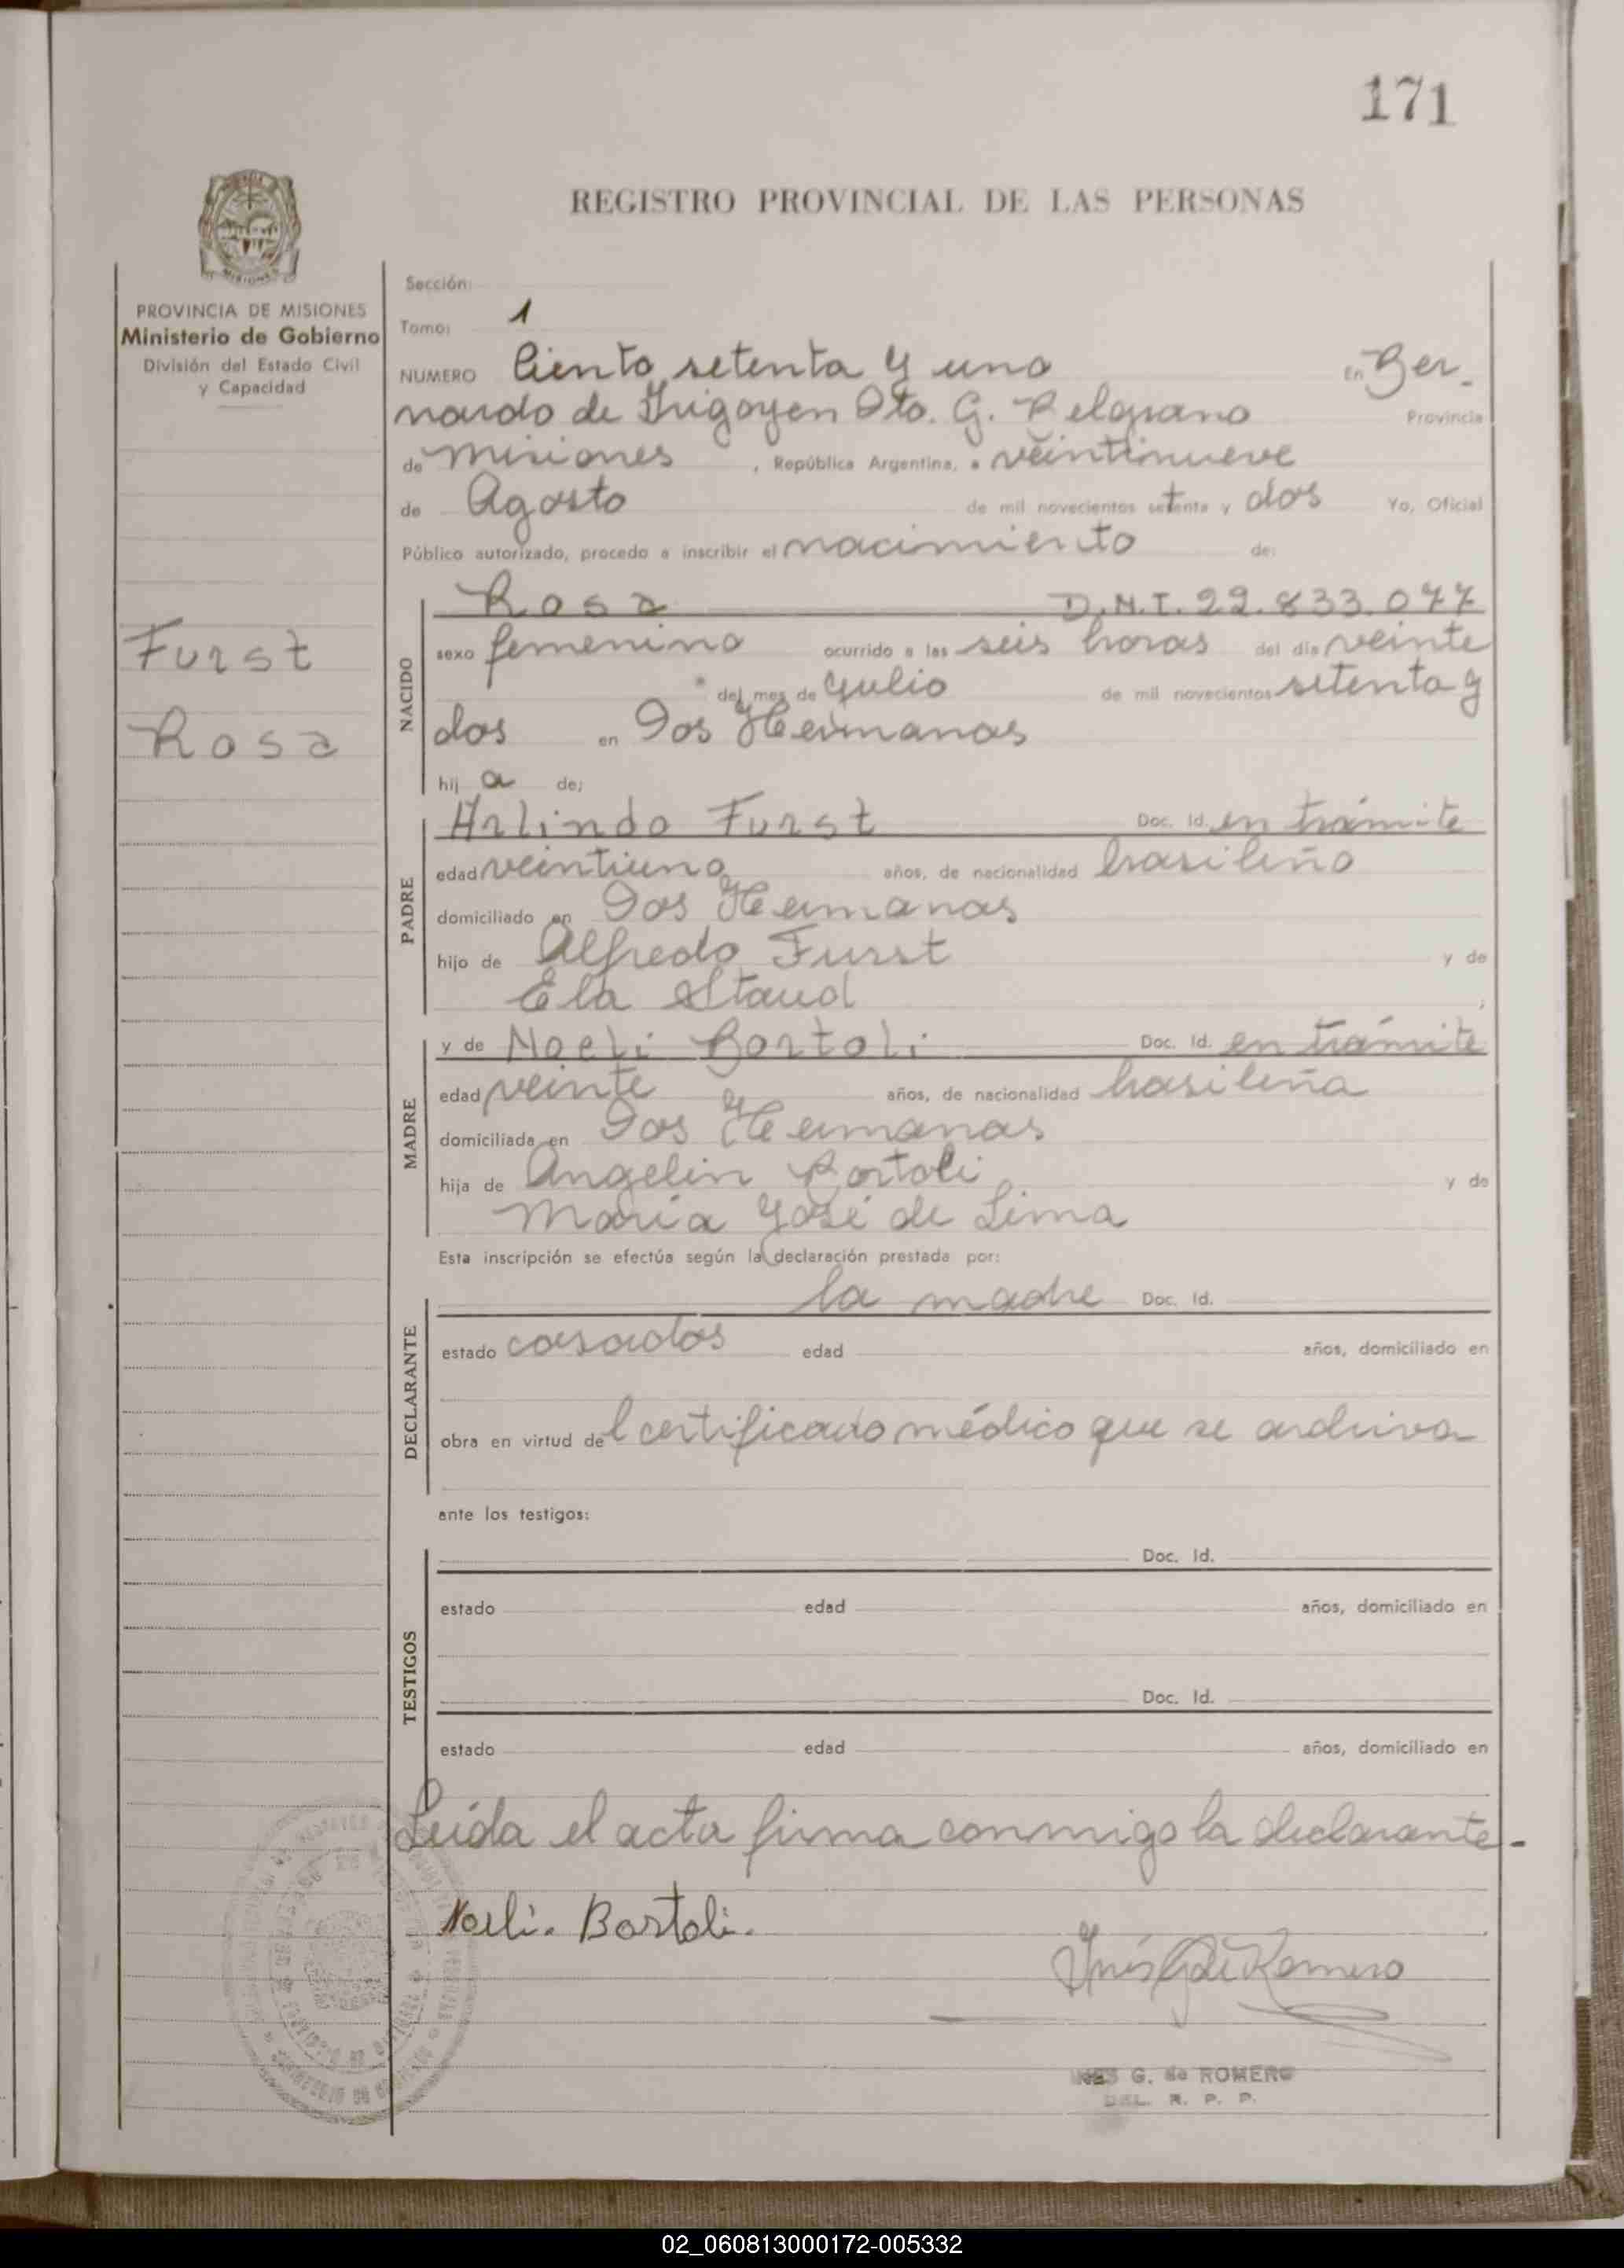 171
REGISTRO PROVINCIAL DE LAS PERSONAS
MISIONES
PROVINCIA DE MISIONES
Ministerio de Gobierno
División del Estado Civil
y Capacidad
Furst
Rosa
Sección:
Tomo: 1
NUMERO Ciento setenta y uno En Ber-
nardo de Irigoyen Dto. G. Belgrano Provincia
de Misiones, República Argentina, a veintinueve
de Agosto de mil novecientos setenta y dos Yo, Oficial
Público autorizado, procedo a inscribir el nacimiento de:
NACIDO
Rosa D.N.I. 22.833.077
sexo femenino ocurrido a las seis horas del día veinte
del mes de Julio de mil novecientos setenta y
dos en Dos Hermanas
hij a de;
PADRE
Arlindo Furst Doc. Id. en trámite
edad veintiuno años, de nacionalidad brasileño
domiciliado en Dos Hermanas
hijo de Alfredo Furst y de
Ela Staud ;
MADRE
y de Noeli Bortoli Doc. Id. en trámite
edad veinte años, de nacionalidad brasileña
domiciliada en Dos Hermanas
hija de Angelin Bortoli y de
María José de Lima
Esta inscripción se efectúa según la declaración prestada por:
DECLARANTE
la madre Doc. Id.
estado casados edad años, domiciliado en
obra en virtud del certificado médico que se archiva
ante los testigos:
TESTIGOS
Doc. Id.
estado edad años, domiciliado en
Doc. Id.
estado edad años, domiciliado en
Leída el acta firma conmigo la declarante.-
Noeli. Bortoli.
Inés G de Romero
INES G. de ROMERO
DEL. R. P. P.
02_060813000172-005332